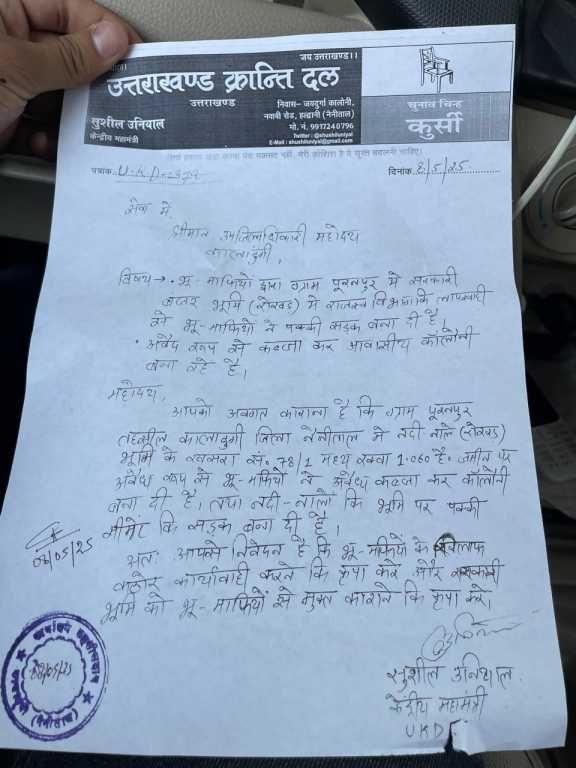 जय उत्तराखण्ड।।
उत्तराखण्ड क्रान्ति दल
उत्तराखण्ड
सुशील उनियाल
केन्द्रीय महामंत्री
निवास– जयदुर्गा कालोनी,
नवाबी रोड, हल्द्वानी (नैनीताल)
मो. नं. 9917240796
Twitter : @shushiluniyal
E-Mail : shushiluniyal@gmail.com
चुनाव चिन्ह
कुर्सी
हंगामा खड़ा करना मेरा मकसद नहीं, मेरी कोशिश है ये सूरत बदलनी चाहिए।
पत्रांक U.K.D.
दिनांक 8/5/25
सेवा में,
श्रीमान उपजिलाधिकारी महोदय
कालाढुंगी,
विषय → • भू-माफियों द्वारा ग्राम पूरनपुर में सरकारी
बंजर भूमि (रोखड) में राजस्व विभाग कि लापरवाही
से भू-माफियों ने पक्की सड़क बना दी है,
• अवैध रूप से कब्जा कर आवासीय कॉलोनी
बना रहे है।
महोदय,
आपको अवगत कराना है कि ग्राम पूरनपुर
तहसील कालाढुंगी जिला नैनीताल में नदी नाले (रोखड)
भूमि के खसरा सं. 78/1 मध्य रकवा 1.060 है. जमीन पर
अवैध रूप से भू-माफियों ने अवैध कब्जा कर कॉलोनी
बना दी है। तथा नदी-नालों कि भूमि पर पक्की
सीमेंट कि सड़क बना दी है।
अतः आपसे निवेदन है कि भू-माफियों के खिलाफ
कठोर कार्यवाही करने कि कृपा करे और सरकारी
भूमि को भू-माफियों से मुक्त कराने कि कृपा करें।
08/05/25
08/05/25
(नैनीताल)
सुशील उनियाल
केंद्रीय महामंत्री
UKD